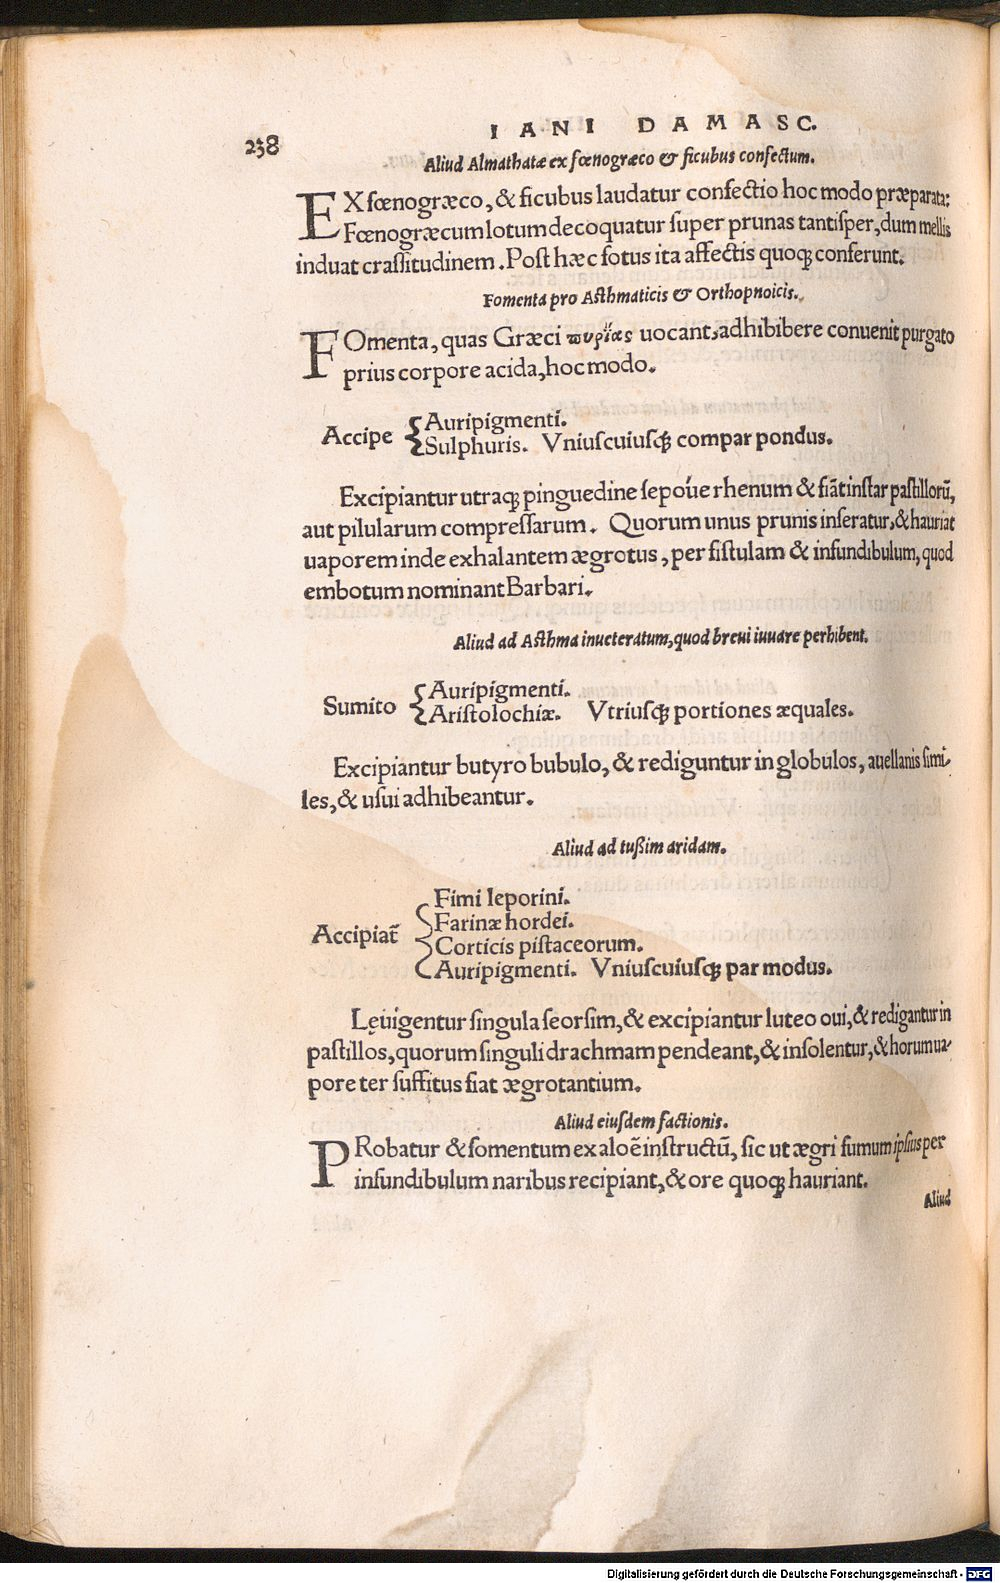 238
IANI DAMASC.
Aliud Almathatæ ex fœnogræco & ficubus confectum.
EX fœnogræco, & ficubus laudatur confectio hoc modo præparata:
Fœnogræcum lotum decoquatur super prunas tantisper, dum mellis
induat crassitudinem. Post hæc fotus ita affectis quoqꝫ conferunt.
Fomenta pro Asthmaticis & Orthopnoicis.
FOmenta, quas Græci πυρίας uocant, adhibibere conuenit purgato
prius corpore acida, hoc modo.
Accipe { Auripigmenti.
Sulphuris. Vniuscuiusqꝫ compar pondus.
Excipiantur utraqꝫ pinguedine sepoue rhenum & fiãt instar pastillorũ,
aut pilularum compressarum. Quorum unus prunis inseratur, & hauriat
uaporem inde exhalantem ægrotus, per fistulam & infundibulum, quod
embotum nominant Barbari.
Aliud ad Asthma inueteratum, quod breui iuuare perhibent.
Sumito { Auripigmenti.
Aristolochiæ. Vtriusqꝫ portiones æquales.
Excipiantur butyro bubulo, & rediguntur in globulos, auellanis simi-
les, & usui adhibeantur.
Aliud ad tußim aridam.
Accipiat̃ { Fimi leporini.
Farinæ hordei.
Corticis pistaceorum.
Auripigmenti. Vniuscuiusqꝫ par modus.
Leuigentur singula seorsim, & excipiantur luteo oui, & redigantur in
pastillos, quorum singuli drachmam pendeant, & insolentur, & horum ua-
pore ter suffitus fiat ægrotantium.
Aliud eiusdem factionis.
PRobatur & fomentum ex aloẽ instructũ, sic ut ægri fumum ipsius per
infundibulum naribus recipiant, & ore quoqꝫ hauriant.
Aliud
Digitalisierung gefördert durch die Deutsche Forschungsgemeinschaft - DFG